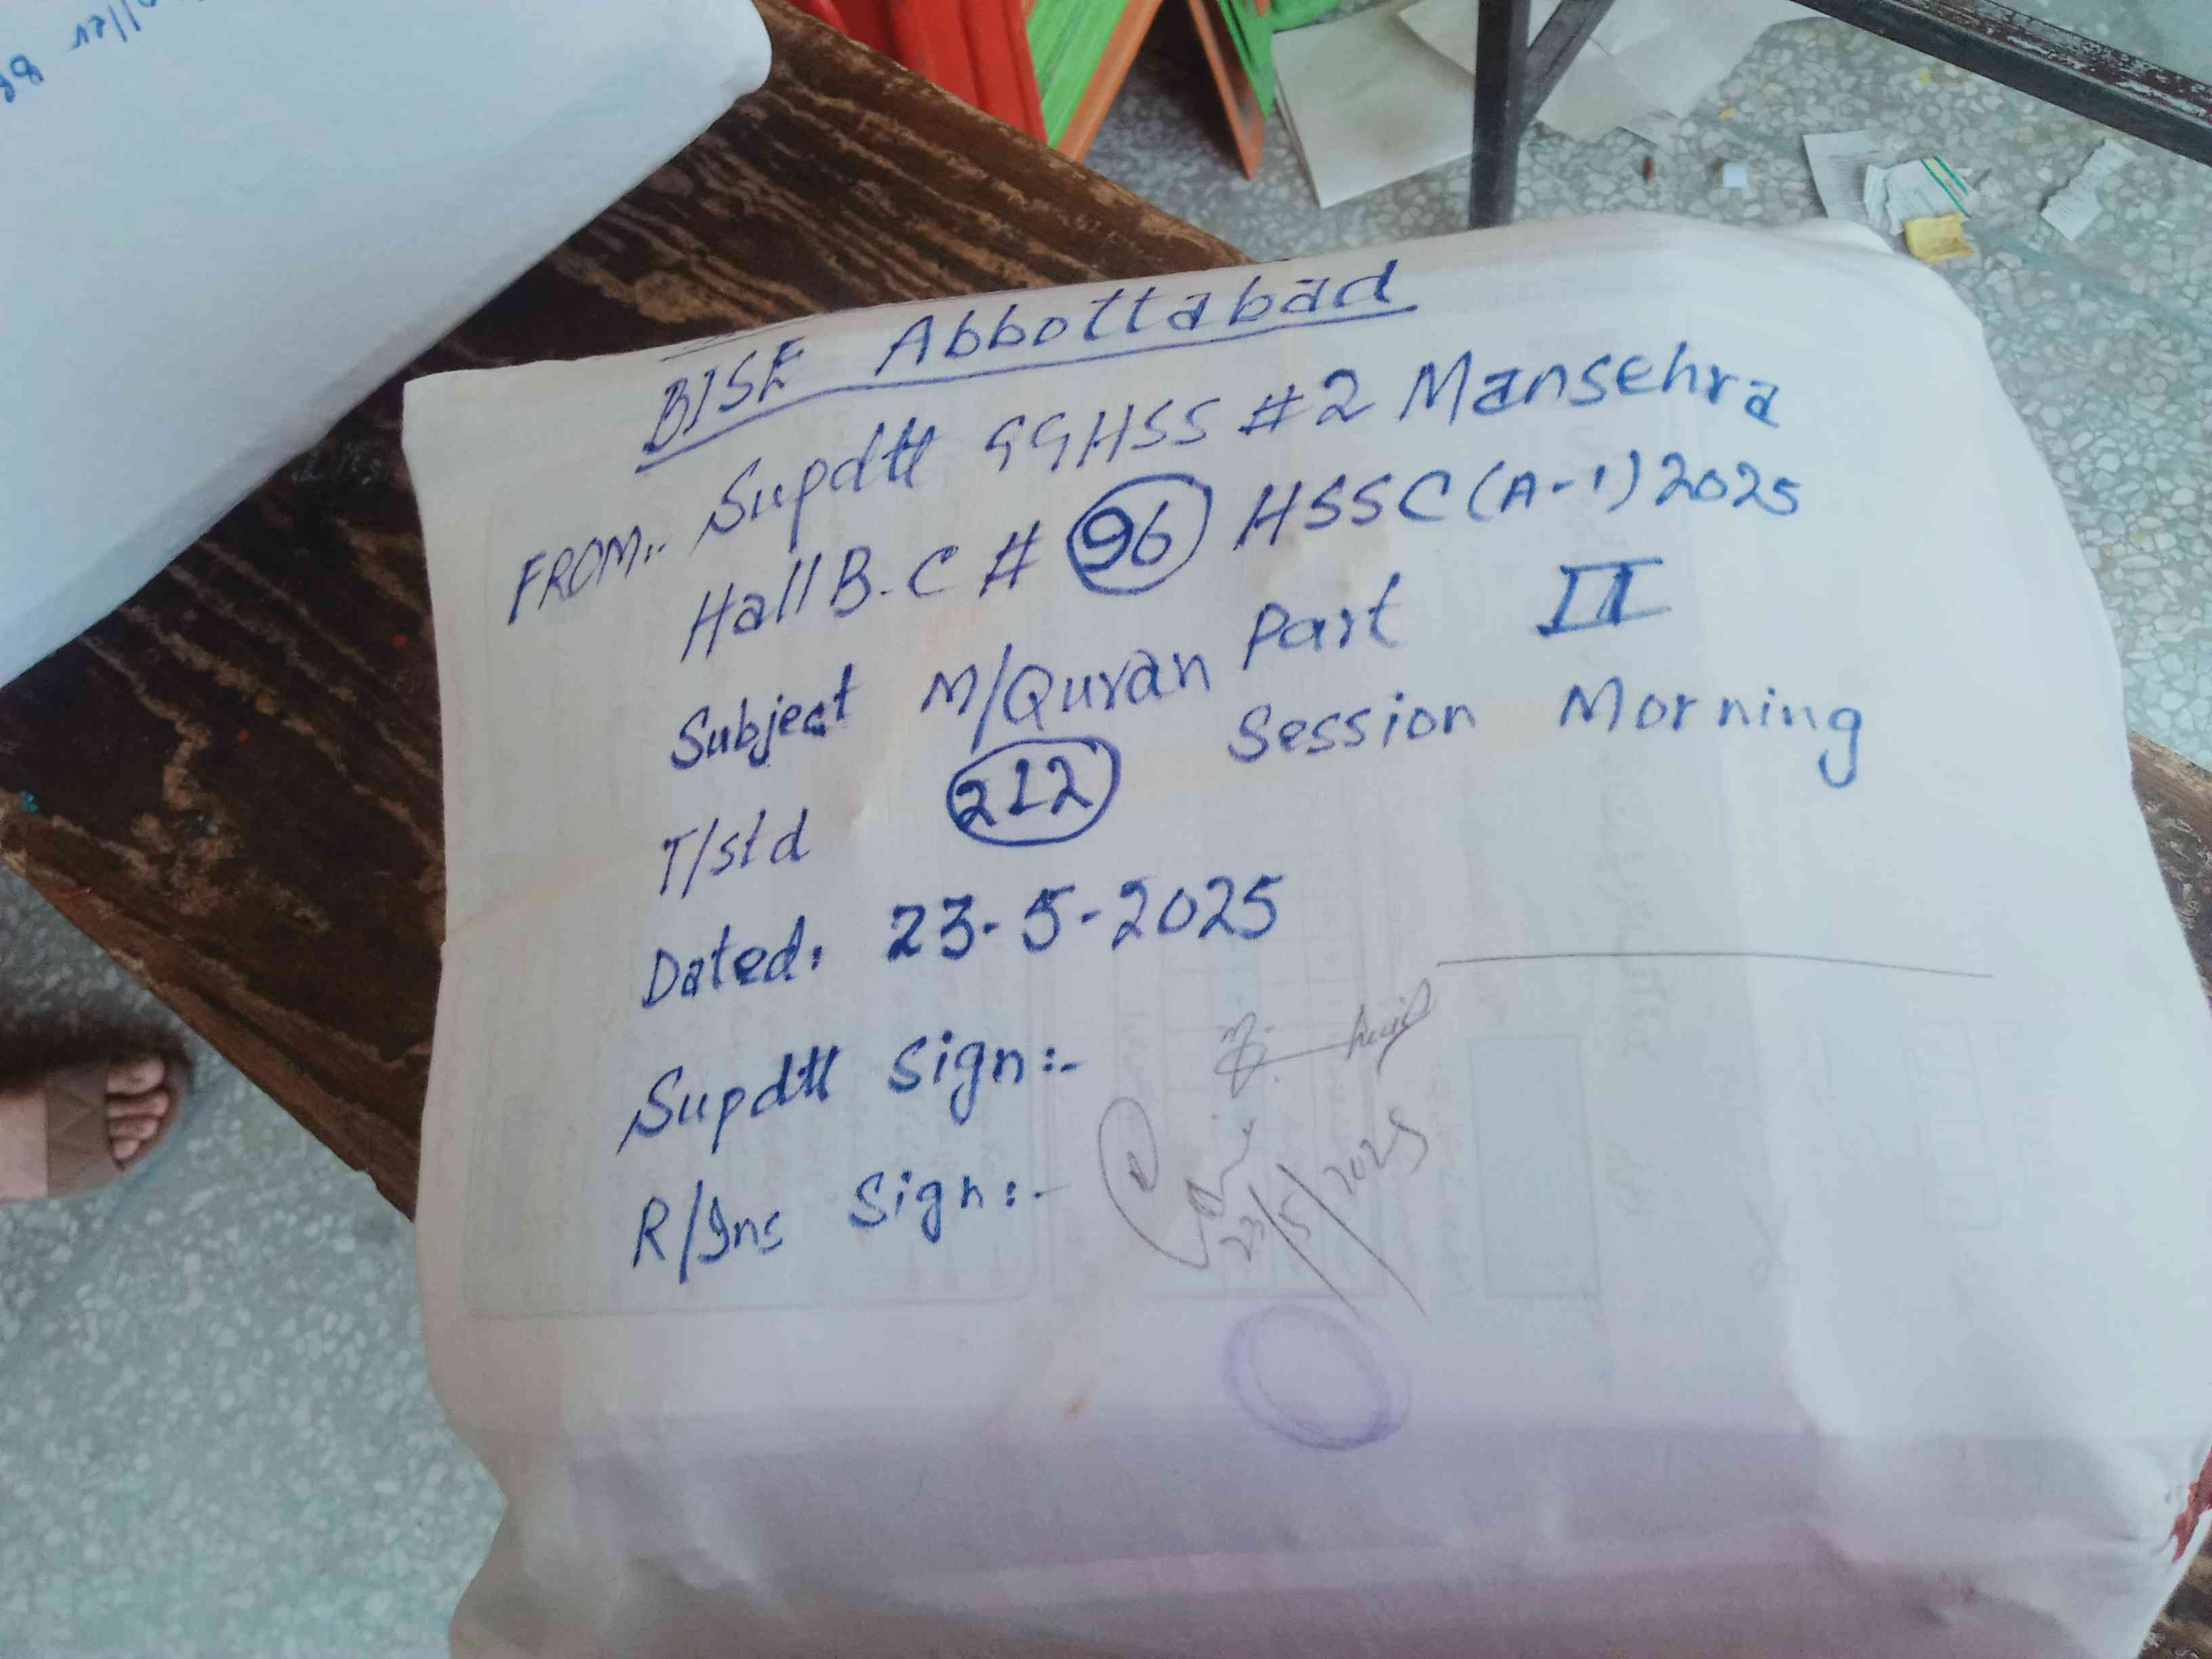 BISE Abbottabad
FROM:- Supdtt GGHSS #2 Mansehra
Hall B.C # 96 HSSC (A-1) 2025
Subject M/Quran Part II
T/std 212 Session Morning
Dated: 23-5-2025
Supdtt Sign:-
R/Ins Sign:-
23/5/2025